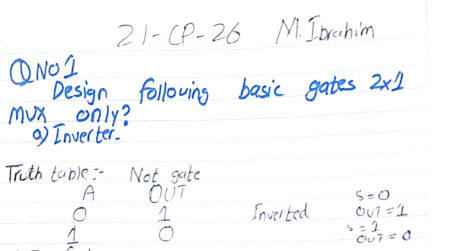 21-CP-26 M.Ibrahim
Q NO 1
Design following basic gates 2x1
mux only?
a) Inverter.
Truth table:- Not gate
A OUT
0 1 Inverted S=0
OUT=1
1 0 S=1
OUT=0